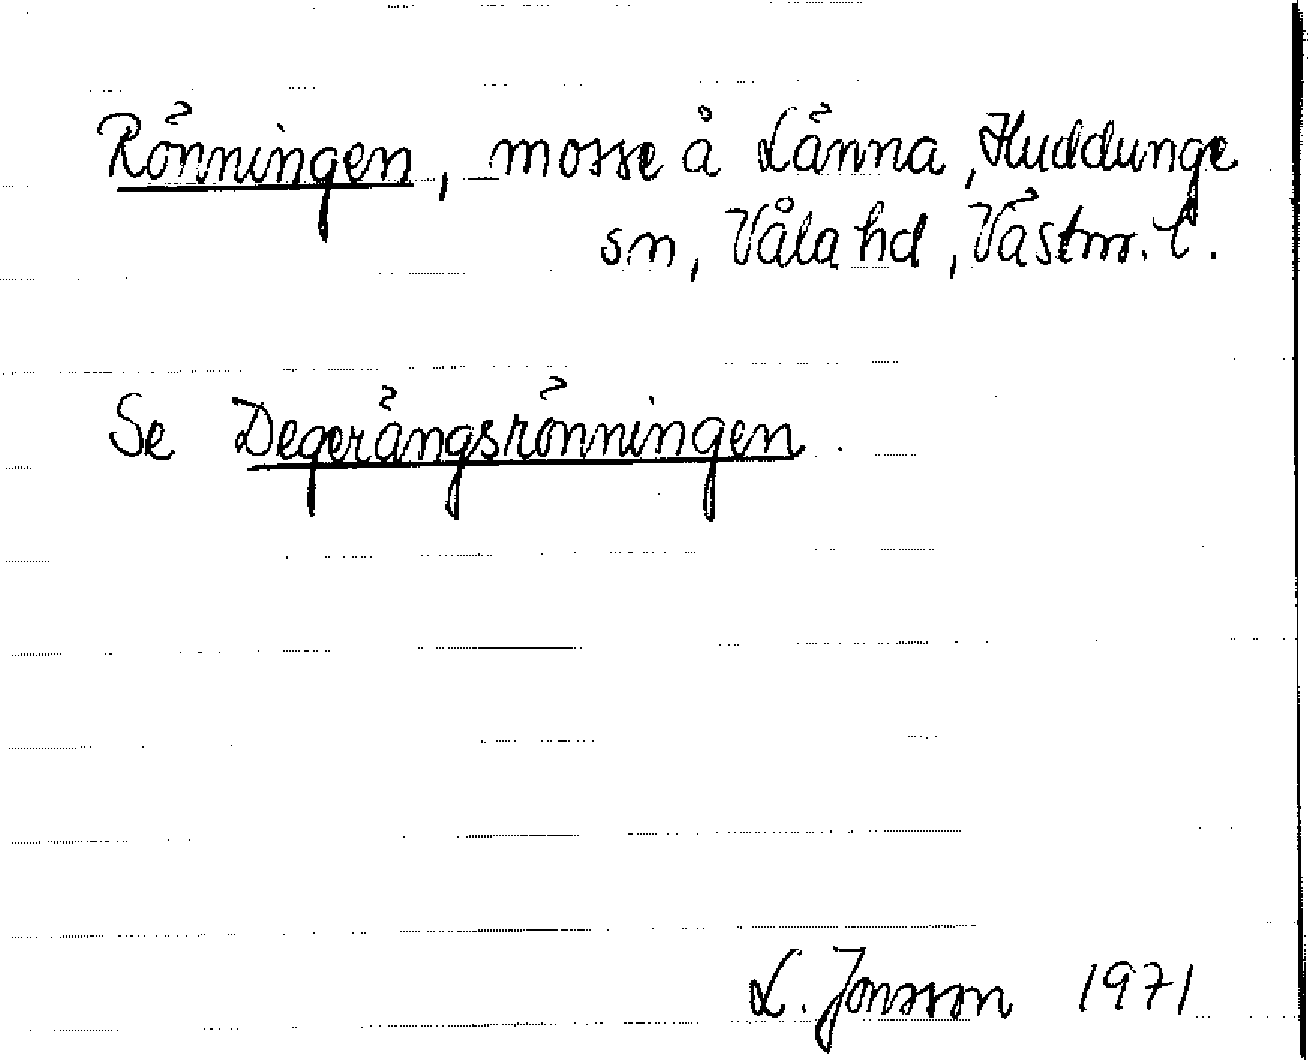 Rönningen, mosse å Länna, Huddunge
sn, Våla hd, Västm. l.
Se Degerängsrönningen.
L. Jonsson 1971